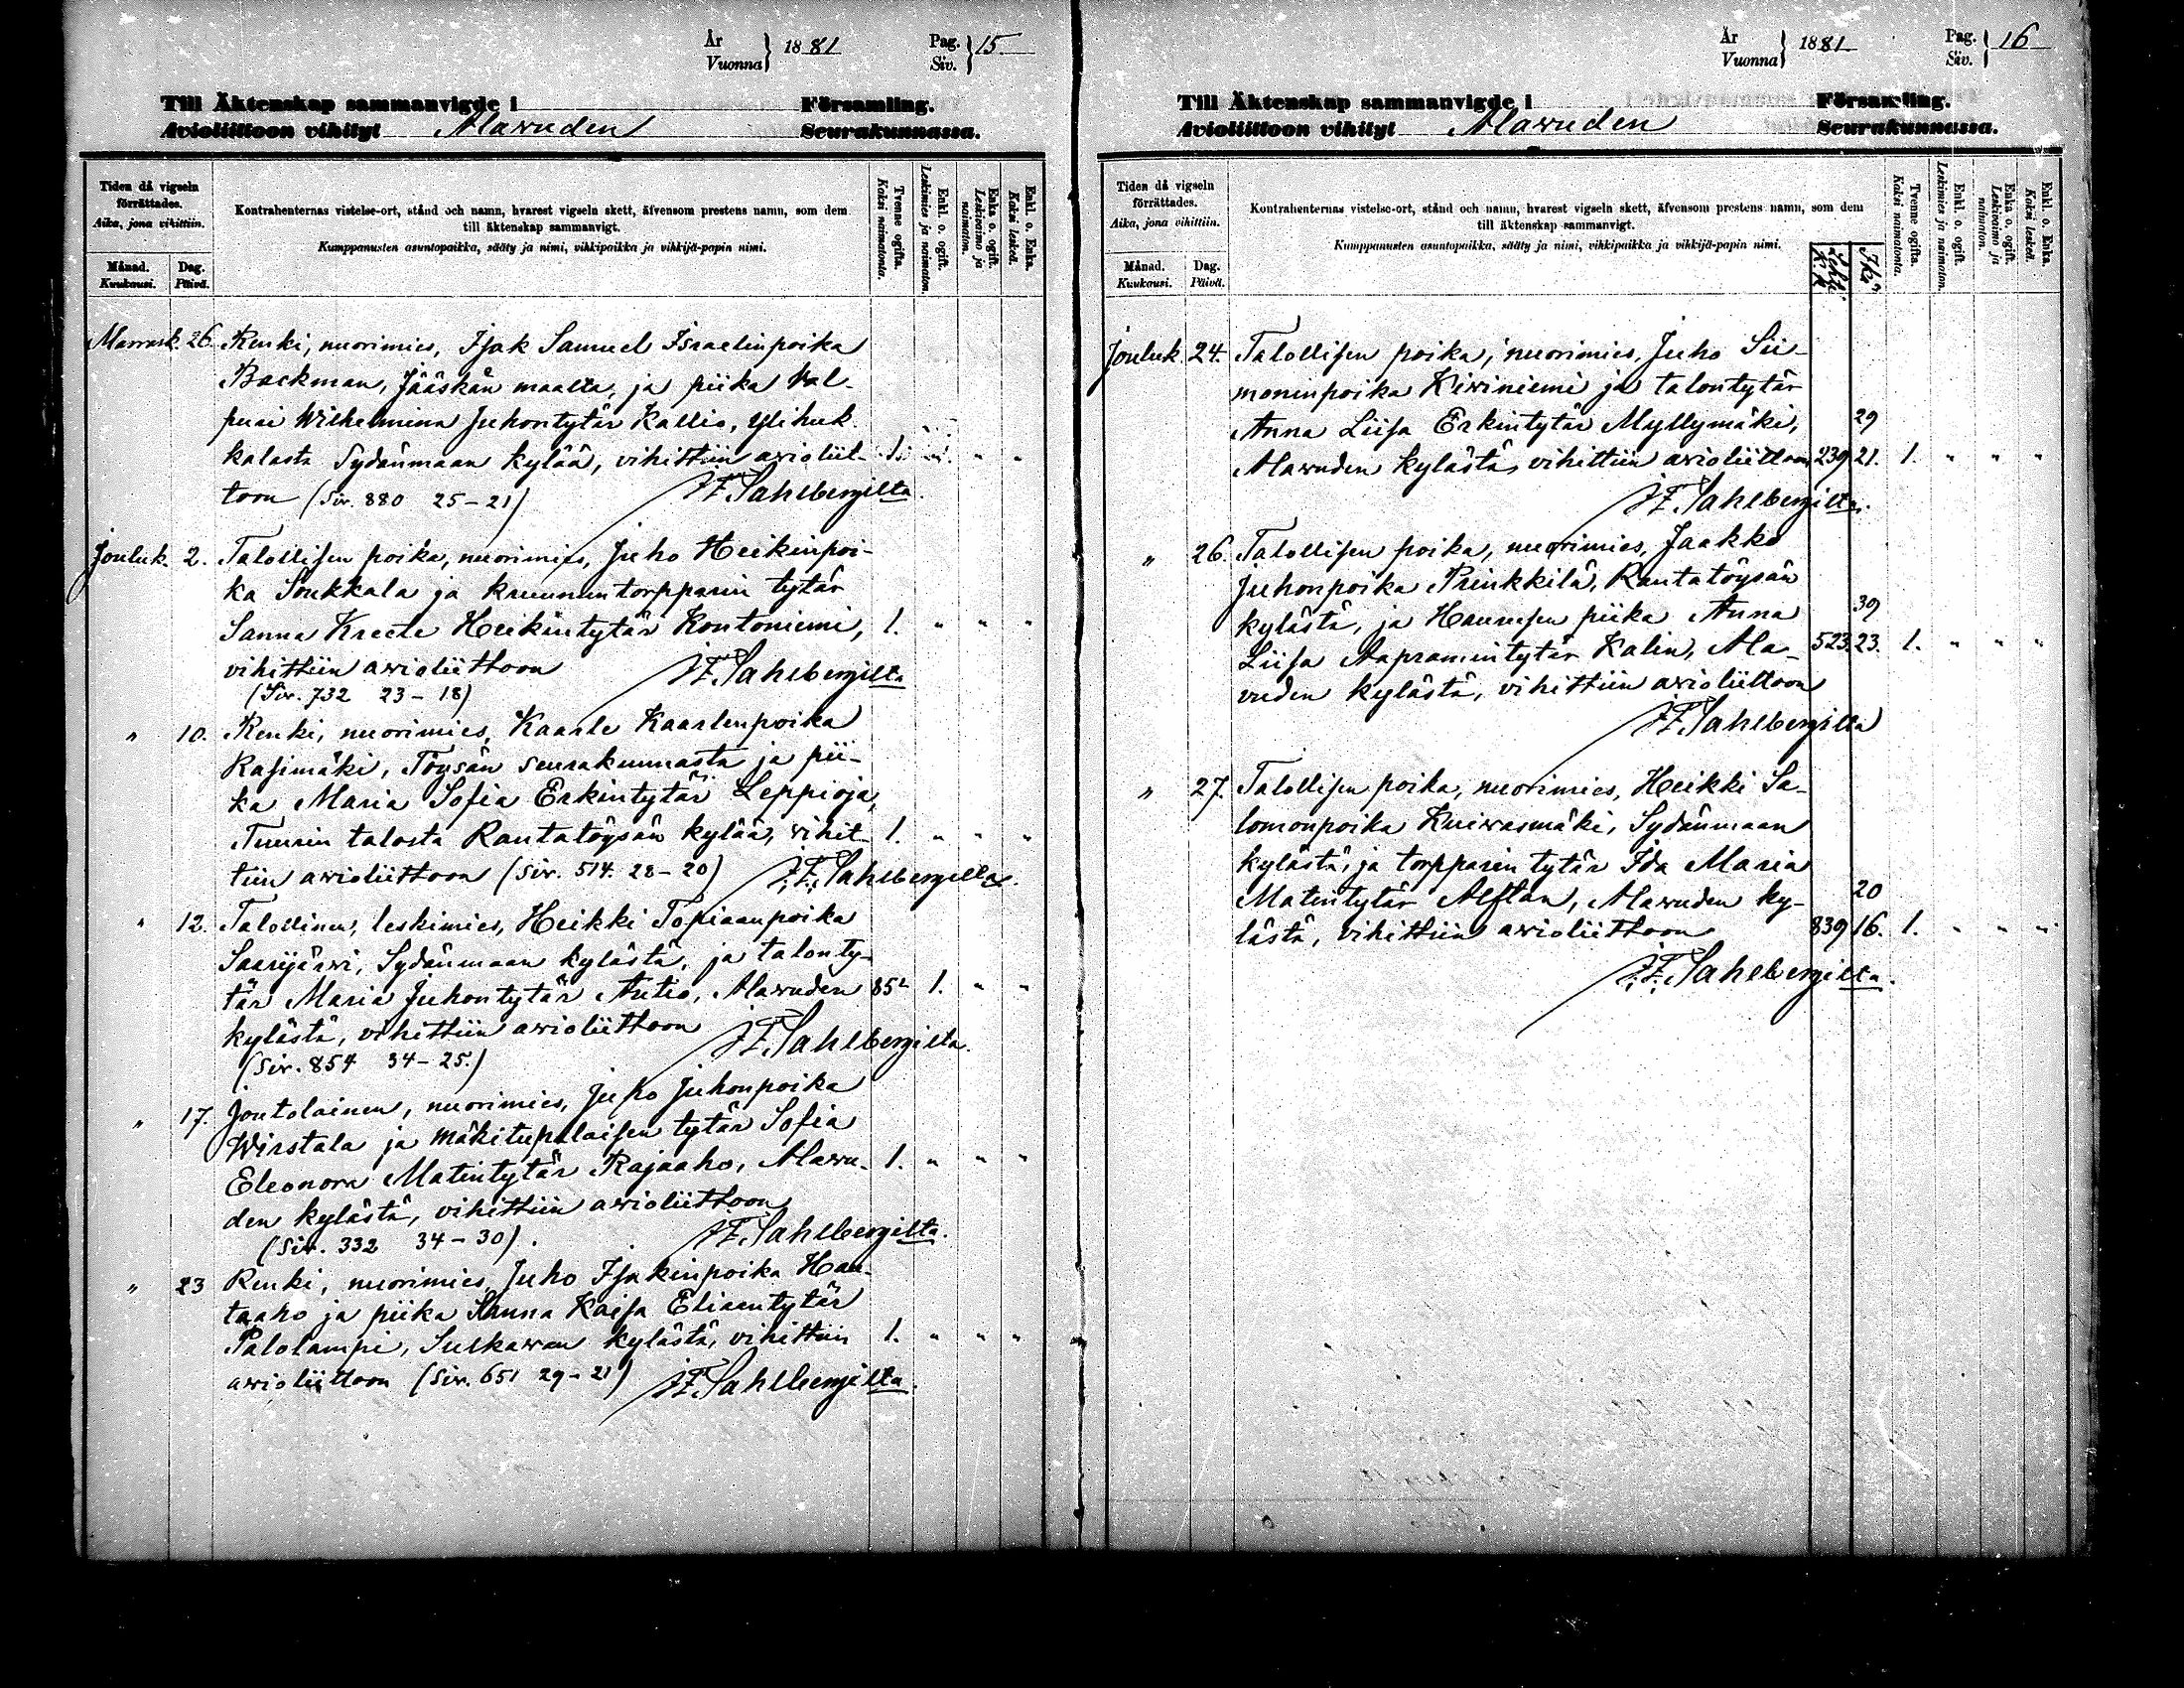 År
Vuonna } 1881 Pag. Siv. } 15
Till Äktenskap sammanvigde i Församling.
Avioliittoon vihityt Alavuden Seurakunnassa.
Tiden då vigseln förrättades.
Aika, jona vihittiin.
Månad. Kuukausi.
Dag. Päivä.
Kontrahenternas vistelse-ort, stånd och namn, hvarest vigseln skett, äfvensom prestens namn, som dem
till äktenskap sammanvigt.
Kumppanusten asuntopaikka, sääty ja nimi, vihkipaikka ja vihkijä-papin nimi.
Tvenne ogifta. Kaksi naimatonta.
Enkl. o. ogift. Leskimies ja naimaton.
Enka o. ogift. Leskivaimo ja naimaton.
Enkl. o. Enka. Kaksi leskeä.
Marrask. 26. Renki, nuorimies, Isak Samuel Israelinpoika
Backman, Jääskän maalta, ja piika Val-
puri Wilhelmina Juhontytär Kallio, Ylihuk-
kalasta Sydänmaan kylää, vihittiin avioliit- 1. " " "
toon (Siv. 880 25-21) J.F. Sahlbergilta.
Jouluk. 2. Talollisen poika, nuorimies, Juho Heikinpoi-
ka Soukkala ja kruununtorpparin tytär
Sanna Kreeta Heikintytär Kontoniemi, 1. " " "
vihittiin avioliittoon J.F. Sahlbergilta
(Siv. 732 23-18)
" 10. Renki, nuorimies, Kaarle Kaarlenpoika
Rasimäki, Töysän seurakunnasta ja pii-
ka Maria Sofia Erkintytär Leppioja,
Tuurin talosta Rantatöysän kylää, vihit- 1. " " "
tiin avioliittoon (Siv. 514. 28-20) J.F. Sahlbergilta.
" 12. Talollinen, leskimies, Heikki Topiaanpoika
Saarijärwi, Sydänmaan kylästä, ja talonty-
tär Maria Juhontytär Autio, Alavuden 852 1. " "
kylästä, vihittiin avioliittoon J.F. Sahlbergilta.
(Siv. 854 34-25.)
" 17. Joutolainen, nuorimies, Juho Juhonpoika
Wirstala ja mäkitupalaisen tytär Sofia
Eleonora Matintytär Rajaaho, Alavu- 1. " " "
den kylästä, vihittiin avioliittoon
(Siv. 332 34-30). J.F. Sahlbergilta.
" 23 Renki, nuorimies, Juho Isakinpoika Hau-
taaho ja piika Sanna Kaisa Eliaantytär
Palolampi, Sulkavan kylästä, vihittiin 1. " " "
avioliittoon (Siv. 651 29-21) J.F. Sahlbergilta.
År
Vuonna } 1881 Pag. Siv. } 16
Till Äktenskap sammanvigde i Församling.
Avioliittoon vihityt Alavuden Seurakunnassa.
Tiden då vigseln förrättades.
Aika, jona vihittiin.
Månad. Kuukausi.
Dag. Päivä.
Kontrahenternas vistelse-ort, stånd och namn, hvarest vigseln skett, äfvensom prestens namn, som dem
till äktenskap sammanvigt.
Kumppanusten asuntopaikka, sääty ja nimi, vihkipaikka ja vihkijä-papin nimi.
Ikä
Tvenne ogifta. Kaksi naimatonta.
Enkl. o. ogift. Leskimies ja naimaton.
Enka o. ogift. Leskivaimo ja naimaton.
Enkl. o. Enka. Kaksi leskeä.
Jouluk. 24. Talollisen poika, nuorimies, Juho Sii-
moninpoika Kiviniemi ja talontytär
Anna Liisa Erkintytär Myllymäki, 29
Alavuden kylästä, vihittiin avioliittoon 239 21. 1. " " "
J.F. Sahlbergilta.
" 26. Talollisen poika, nuorimies, Jaakko
Juhonpoika Prinkkilä, Rantatöysän
kylästä, ja Haunusen piika Anna 39
Liisa Aapramintytär Kalin, Ala- 523. 23. 1. " " "
vuden kylästä, vihittiin avioliittoon
J.F. Sahlbergilta
" 27. Talollisen poika, nuorimies, Heikki Sa-
lomonpoika Kuivasmäki, Sydänmaan
kylästä, ja torpparin tytär Ida Maria
Matintytär Alftan, Alavuden ky- 20
lästä, vihittiin avioliittoon 839 16. 1. " " "
J.F. Sahlbergilta.